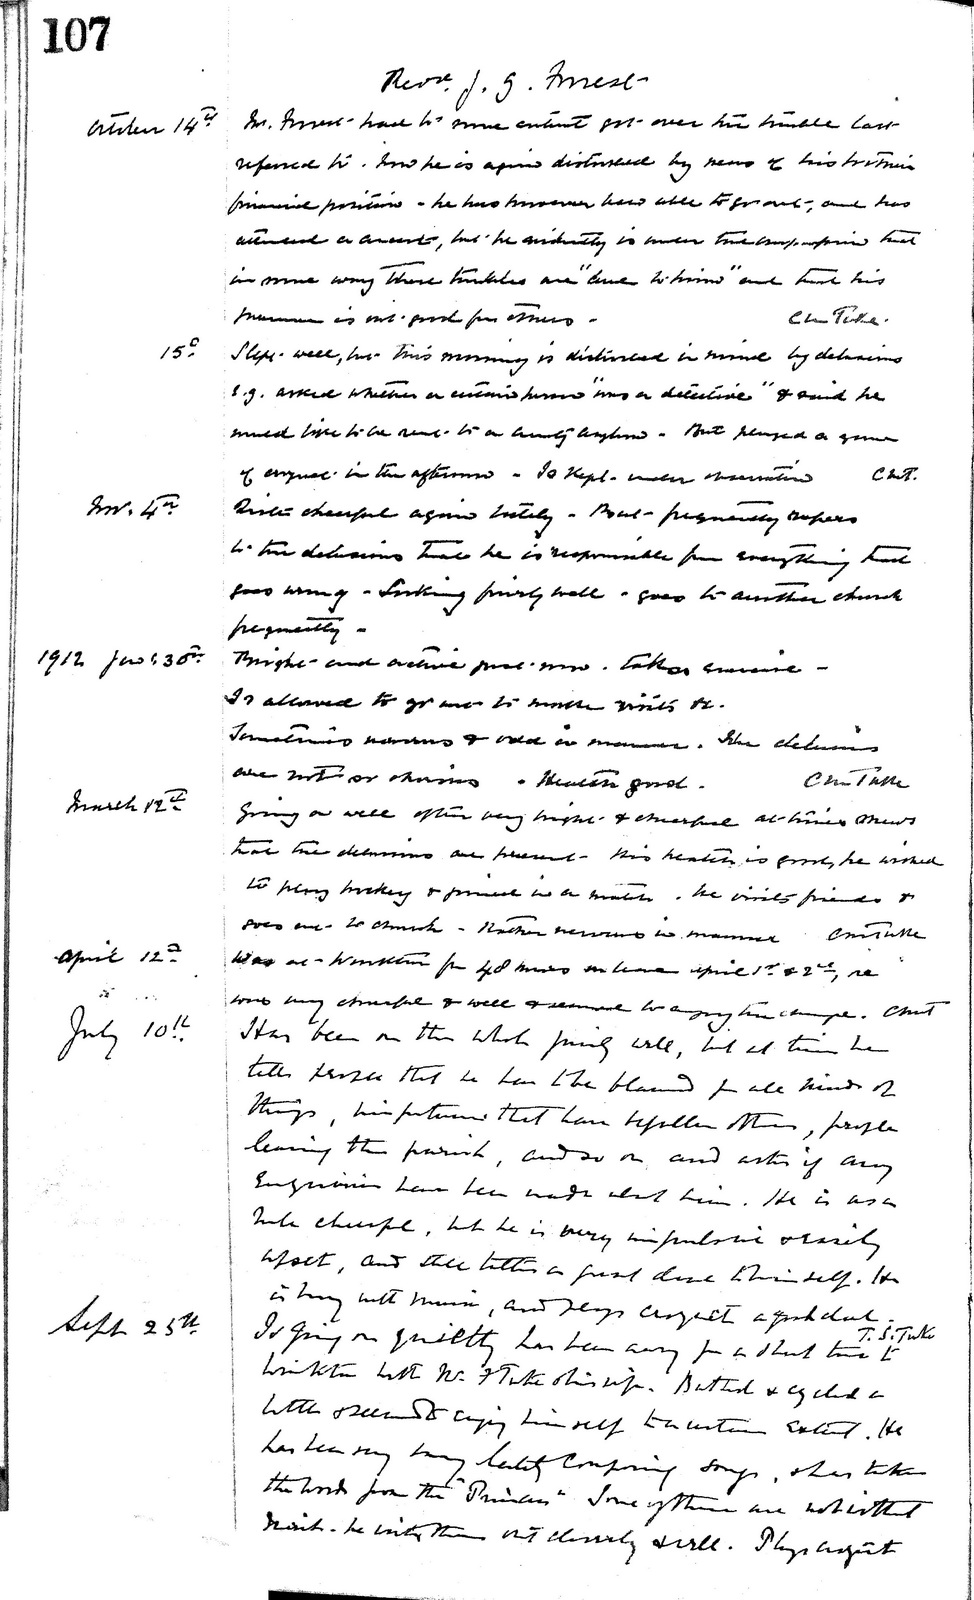 107
Revd. J. G. Forrest
October 14th Mr. Forrest had to some extent got over the trouble last
referred to. Now he is again disturbed by news of his brother's
financial position - he has however been able to go out, and has
attended a concert, but he evidently is under the impression that
in some way these troubles are "due to him" and that his
presence is not good for others - Chm Tuke.
15th Slept well, but this morning is disturbed in mind by delusions
e.g. asked whether a certain person "was a detective" & said he
would like to be sent to a county asylum - But played a game
of croquet in the afternoon - Is kept under observation CMT.
Nov. 4th Quite cheerful again lately - But frequently refers
to the delusions that he is responsible for everything that
goes wrong - Looking fairly well - goes to another church
frequently -
1912 Jany 30th Bright and active just now. takes exercise -
Is allowed to go out to make visits &c.
Sometimes nervous & odd in manner. The delusions
are not so obvious - Health good. Chm Tuke
March 12th Going on well often very bright & cheerful at times shews
that the delusions are present - His health is good, he wished
to play hockey & joined in a match. he visits friends &
goes out to church - Rather nervous in manner Chm Tuke
April 12th Was at for 48 hours on leave April 1st & 2nd, he
was very cheerful & well & seemed to enjoy the change. CMT
July 10th Has been on the whole fairly well, but at times he
tells people that he has to be blamed for all kinds of
things, misfortunes that have befallen others, people
leaving the parish, and so on and asks if any
Enquiries have been made about him. He is as a
rule cheerful, but he is very impulsive & easily
upset, and still talks a great deal to himself. He
is busy with music, and plays croquet a good deal.
T. S. Tuke
Sept 25th Is going on quietly has been away for a short time to
with Mr & Tuke & his wife. Bathed & cycled a
little & seemed to enjoy himself to a certain extent. He
has been very busy lately Composing songs, & has taken
the words from the "Princess" Some of them are not without
merit - he writes them out cleverly & well. Plays croquet